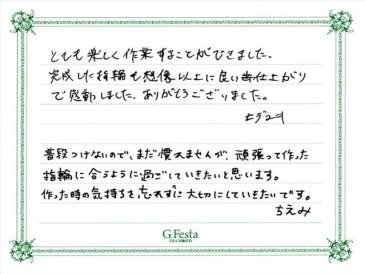 とても楽しく作業することができました。
完成した指輪も想像以上に良い出仕上がり
で感動しました。ありがとうございました。
ヒデユキ
普段つけないので、まだ慣れませんが、頑張って作った
指輪に合うように過ごしていきたいと思います。
作った時の気持ちを忘れずに大切にしていきたいです。
ちえみ
G.Festa
DIAMOND